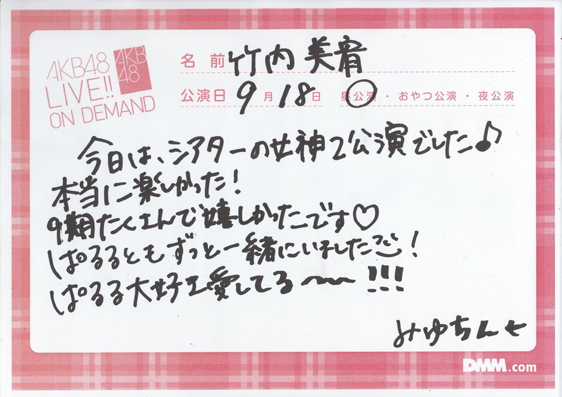 AKB48
LIVE!!
ON DEMAND
AKB
48
名前 竹内美宥
公演日 9月18日 昼公演・おやつ公演・夜公演
今日は、シアターの女神2公演でした♪
本当に楽しかった!
9期たくさんで嬉しかったです♡
ぱるるともずっと一緒にいました!
ぱるる大好き愛してる〜〜!!!
みゆちんせ
DMM.com